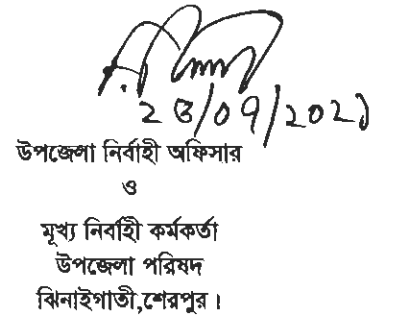 উপজেলা নির্বাহী অফিসার
ও
মূখ্য নির্বাহী কর্মকর্তা
উপজেলা পরিষদ
ঝিনাইগাতী,শেরপুর।